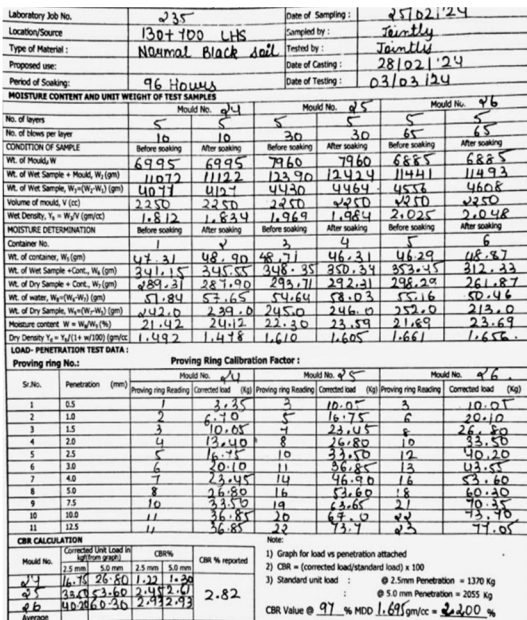 Laboratory Job No. 235 Date of Sampling : 25/02/'24
Location/Source 130+700 LHS Sampled by : Jointly
Type of Material : Normal Black Soil Tested by : Jointly
Proposed use: Date of Casting : 28/02/'24
Period of Soaking: 96 Hours Date of Testing : 03/03/'24
MOISTURE CONTENT AND UNIT WEIGHT OF TEST SAMPLES
Mould No. 24 Mould No. 25 Mould No. 26
No. of layers 5 5 5 5 5 5
No. of blows per layer 10 10 30 30 65 65
CONDITION OF SAMPLE Before soaking After soaking Before soaking After soaking Before soaking After soaking
Wt. of Mould, W 6995 6995 7960 7960 6885 6885
Wt. of Wet Sample + Mould, W₂ (gm) 11072 11122 12390 12424 11441 11493
Wt. of Wet Sample, W₃=(W₂-W₁) (gm) 4077 4127 4430 4464 4556 4608
Volume of mould, V (cc) 2250 2250 2250 2250 2250 2250
Wet Density, Yₛ = W₃/V (gm/cc) 1.812 1.834 1.969 1.984 2.025 2.048
MOISTURE DETERMINATION Before soaking After soaking Before soaking After soaking Before soaking After soaking
Container No. 1 2 3 4 5 6
Wt. of container, W₅ (gm) 47.31 48.90 48.71 46.31 46.29 48.87
Wt. of Wet Sample + Cont., W₆ (gm) 341.15 345.55 348.35 350.34 353.45 312.33
Wt. of Dry Sample + Cont., W₇ (gm) 289.31 287.90 293.71 292.31 298.29 261.87
Wt. of water, W₈=(W₆-W₇) (gm) 51.84 57.65 54.64 58.03 55.16 50.46
Wt. of Dry Sample, W₉=(W₇-W₅) (gm) 242.0 239.0 245.0 246.0 252.0 213.0
Moisture content W = W₈/W₉ (%) 21.42 24.12 22.30 23.59 21.89 23.69
Dry Density Yd = Yₛ/(1+ w/100) (gm/cc) 1.492 1.478 1.610 1.605 1.661 1.656
LOAD- PENETRATION TEST DATA :
Proving ring No.: Proving Ring Calibration Factor :
Mould No. 24 Mould No. 25 Mould No. 26
Sr.No. Penetration (mm) Proving ring Reading Corrected load (Kg) Proving ring Reading Corrected load (Kg) Proving ring Reading Corrected load (Kg)
1 0.5 1 3.35 3 10.05 3 10.05
2 1.0 2 6.70 5 16.75 6 20.10
3 1.5 3 10.05 7 23.45 8 26.80
4 2.0 4 13.40 8 26.80 10 33.50
5 2.5 5 16.75 10 33.50 12 40.20
6 3.0 6 20.10 11 36.85 13 43.55
7 4.0 7 23.45 14 46.90 16 53.60
8 5.0 8 26.80 16 53.60 18 60.30
9 7.5 10 33.50 19 63.65 21 70.35
10 10.0 11 36.85 20 67.0 22 73.70
11 12.5 11 36.85 22 73.7 23 77.05
CBR CALCULATION Note:
Mould No. Corrected Unit Load in kg(from graph) CBR% CBR % reported 1) Graph for load vs penetration attached
2.5 mm 5.0 mm 2.5 mm 5.0 mm 2) CBR = (corrected load/standard load) x 100
24 16.75 26.80 1.22 1.30 3) Standard unit load : @ 2.5mm Penetration = 1370 Kg
25 33.50 53.60 2.45 2.61 2.82 : @ 5.0 mm Penetration = 2055 Kg
26 40.20 60.30 2.93 2.93
Average CBR Value @ 97 % MDD 1.695 gm/cc = 2.200 %